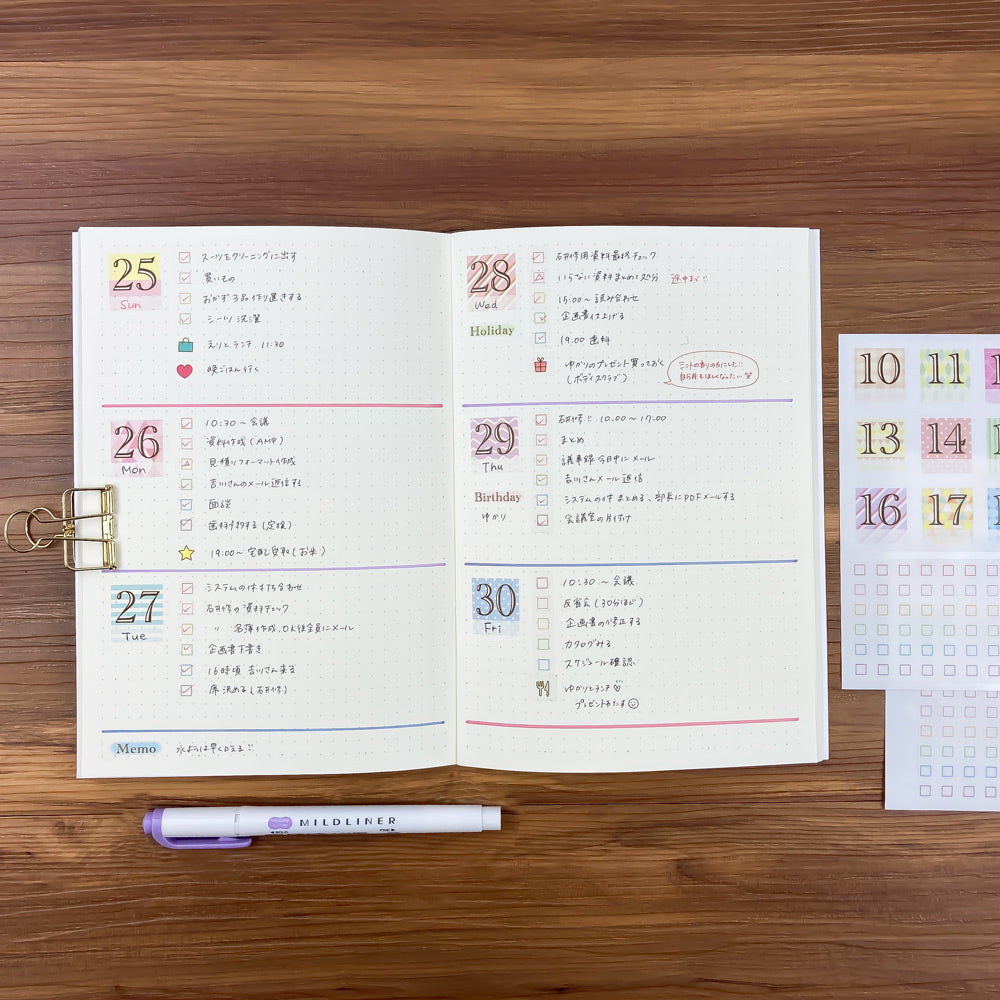 25
Sun
スーツをクリーニングに出す
買いもの
おかず3品作り置きする
シーツ洗濯
えりとランチ 11:30
晩ごはん行く
26
Mon
10:30〜会議
資料作成(AM中)
見積りフォーマット作成
吉川さんのメール返信する
面談
歯科予約する(定検)
19:00〜宅配受取(お米)
27
Tue
システムの件打ち合わせ
研修の資料チェック
〃 名簿作成、OK後全員にメール
企画書下書き
16時頃 吉川さん来る
席決める(研修)
Memo
水ようは早く帰える!!
28
Wed
Holiday
研修用資料最終チェック
いらない資料まとめて処分 途中まで!!
15:00〜読み合わせ
企画書仕上げる
19:00 歯科
ゆかりのプレゼント買っておく
(ボディスクラブ)
ミントの香りのにした!!
自分用もほしくなった…
29
Thu
Birthday
ゆかり
研修!! 10:00〜17:00
まとめ
議事録今日中にメール
吉川さんメール返信
システムの件まとめる、部長にPDFメールする
会議室の片付け
30
Fri
10:30〜会議
反省会(30分ほど)
企画書の修正する
カタログみる
スケジュール確認
ゆかりとランチ
プレゼントわたす
10
11
13
14
16
17
MILDLINER